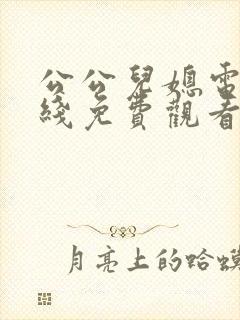 公公兒媳電
綫免費觀看
月亮上的蛤蟆